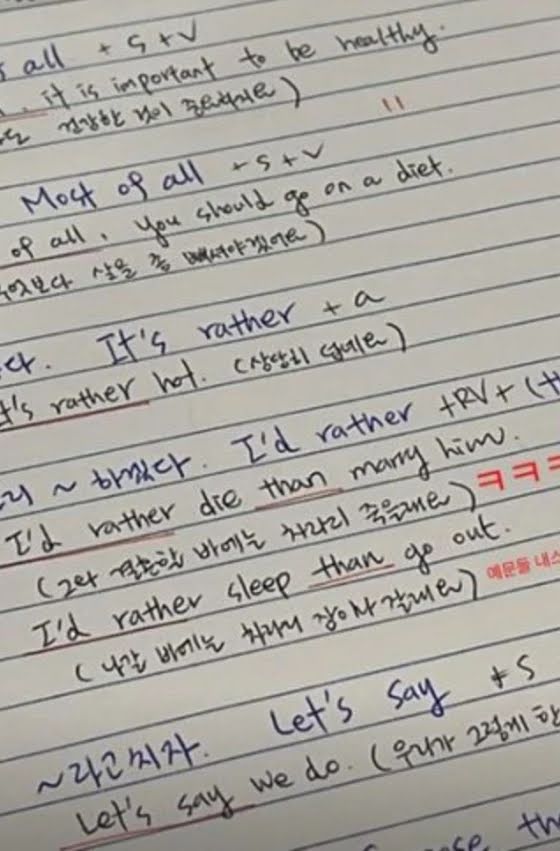 all + S + V
it is important to be healthy.
건강한 것이 중요하지요)
Most of all + S + V
of all, you should go on a diet.
무엇보다 살을 좀 빼셔야겠어요)
It's rather + a
It's rather hot. (상당히 덥네요)
~ 하겠다. I'd rather +RV+ (th
I'd rather die than marry him.
ㅋㅋㅋ
(그와 결혼할 바에는 차라리 죽을래요)
I'd rather sleep than go out.
예문들 내스
(나갈 바에는 차라리 잠이나 잘래요)
~라고 치자. Let's say + S
Let's say we do. (우리가 그렇게 한